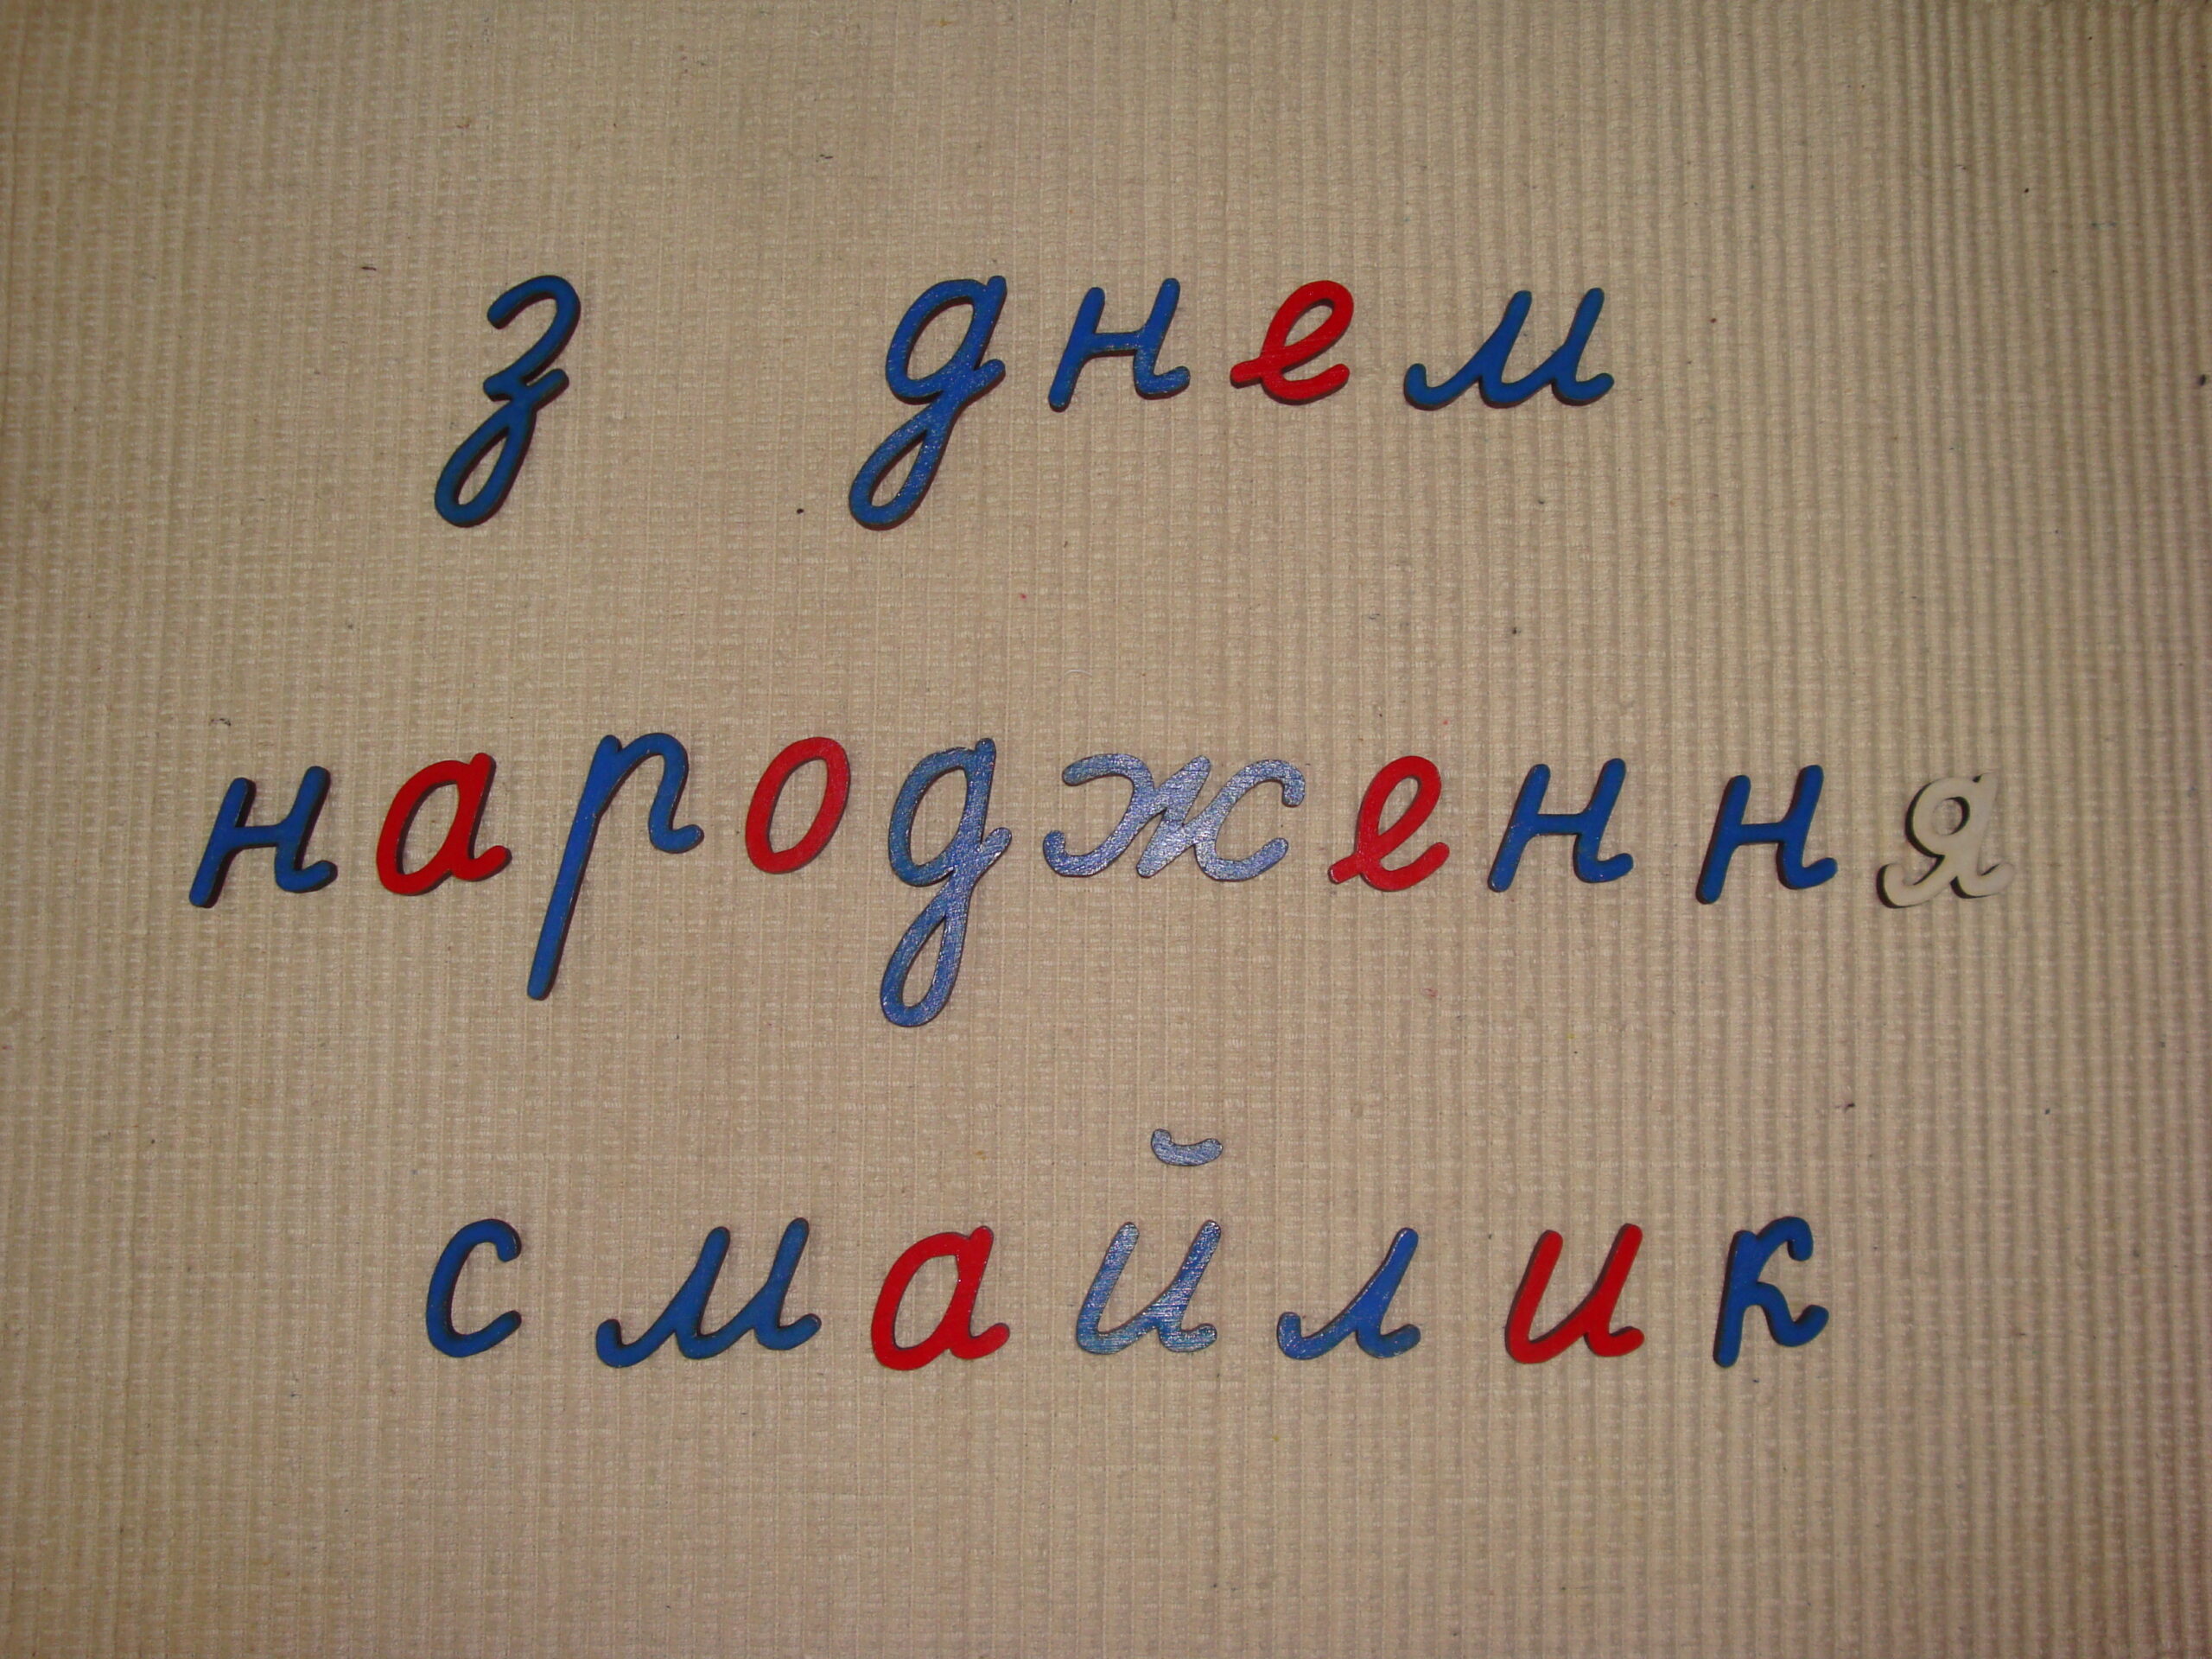 з днем
народження
смайлик